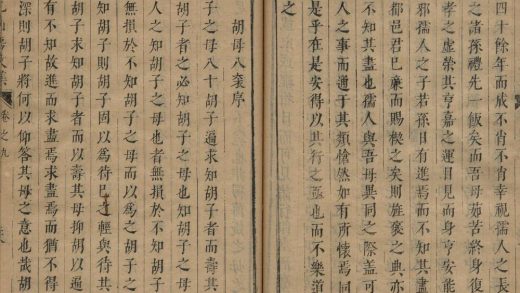 四十餘年而放不肖不肖幸視孺人之長
之諸孫禮先一飯矣而吾母茹苦終身復
孝之虛榮其亨嘉之運目見而身亨安能
邪孺人之子若孫日有進焉而不知其盡
都邑君巳廉而賜之矣則旌褒之典亦
不知其盡也孺人與吾母異同之際蓋可
人之事而適于其類愴然如有所懷焉同
是乎在是安得以其行之亟也而不樂道
之
胡母八袠序
子之母八十胡子遍求知胡子者而壽其
胡子者之必知胡子之母也知胡子
人之知胡子之母也者無損於不知胡子
無損於不知胡子之母而以為胡子之
知胡子則胡子固以為待巳之輕與待其
胡子求知胡子者而以壽其母抑胡以遍
有不知故進而求盡焉求盡焉而猶不得
深則胡子將何以仰答其母之意也哉胡
卷之九